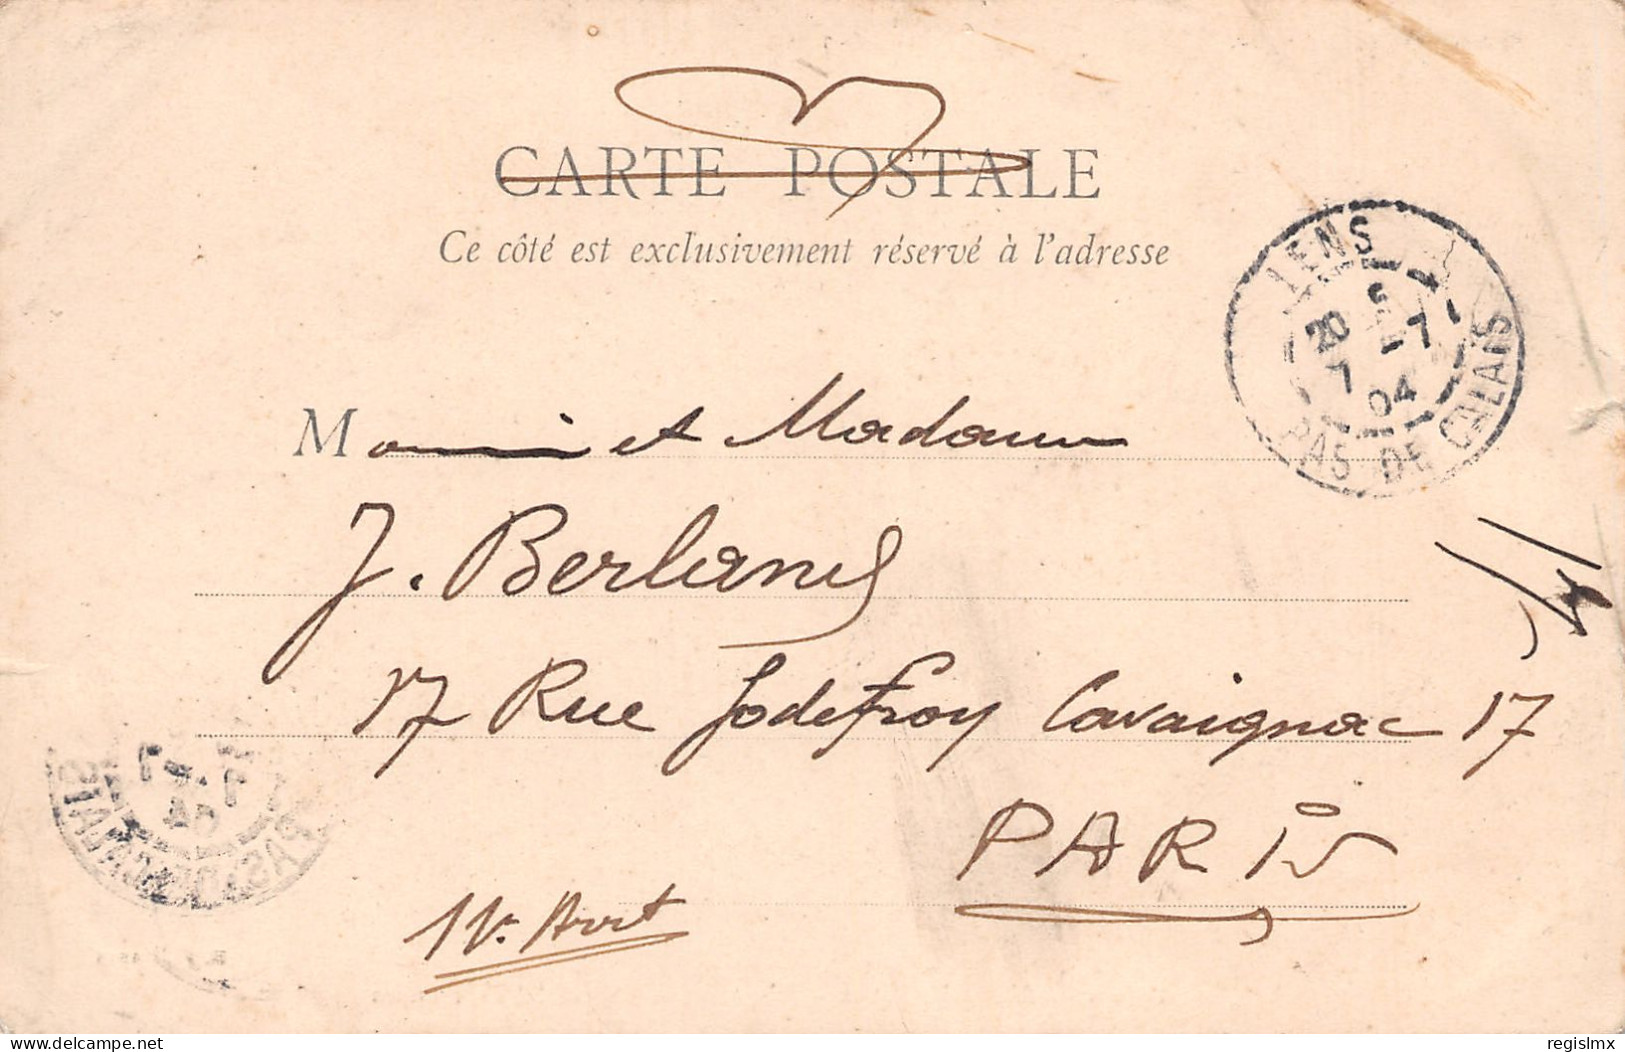 CARTE POSTALE
Ce côté est exclusivement réservé à l'adresse
LENS
20 7
7 04
PAS DE CALAIS
M et Madame
J. Berland
17 Rue Godefroy Cavaignac 17
PARIS
11e Arrt
www.delcampe.net
regislmx